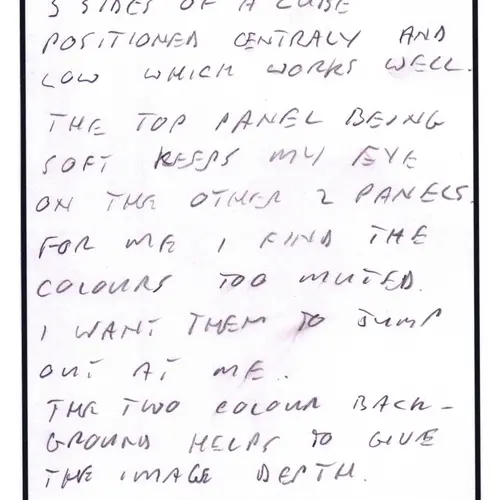 3 SIDES OF A CUBE
POSITIONED CENTRALY AND
LOW WHICH WORKS WELL.
THE TOP PANEL BEING
SOFT KEEPS MY EYE
ON THE OTHER 2 PANELS.
FOR ME I FIND THE
COLOURS TOO MUTED.
I WANT THEM TO JUMP
OUT AT ME.
THE TWO COLOUR BACK-
GROUND HELPS TO GIVE
THE IMAGE DEPTH.